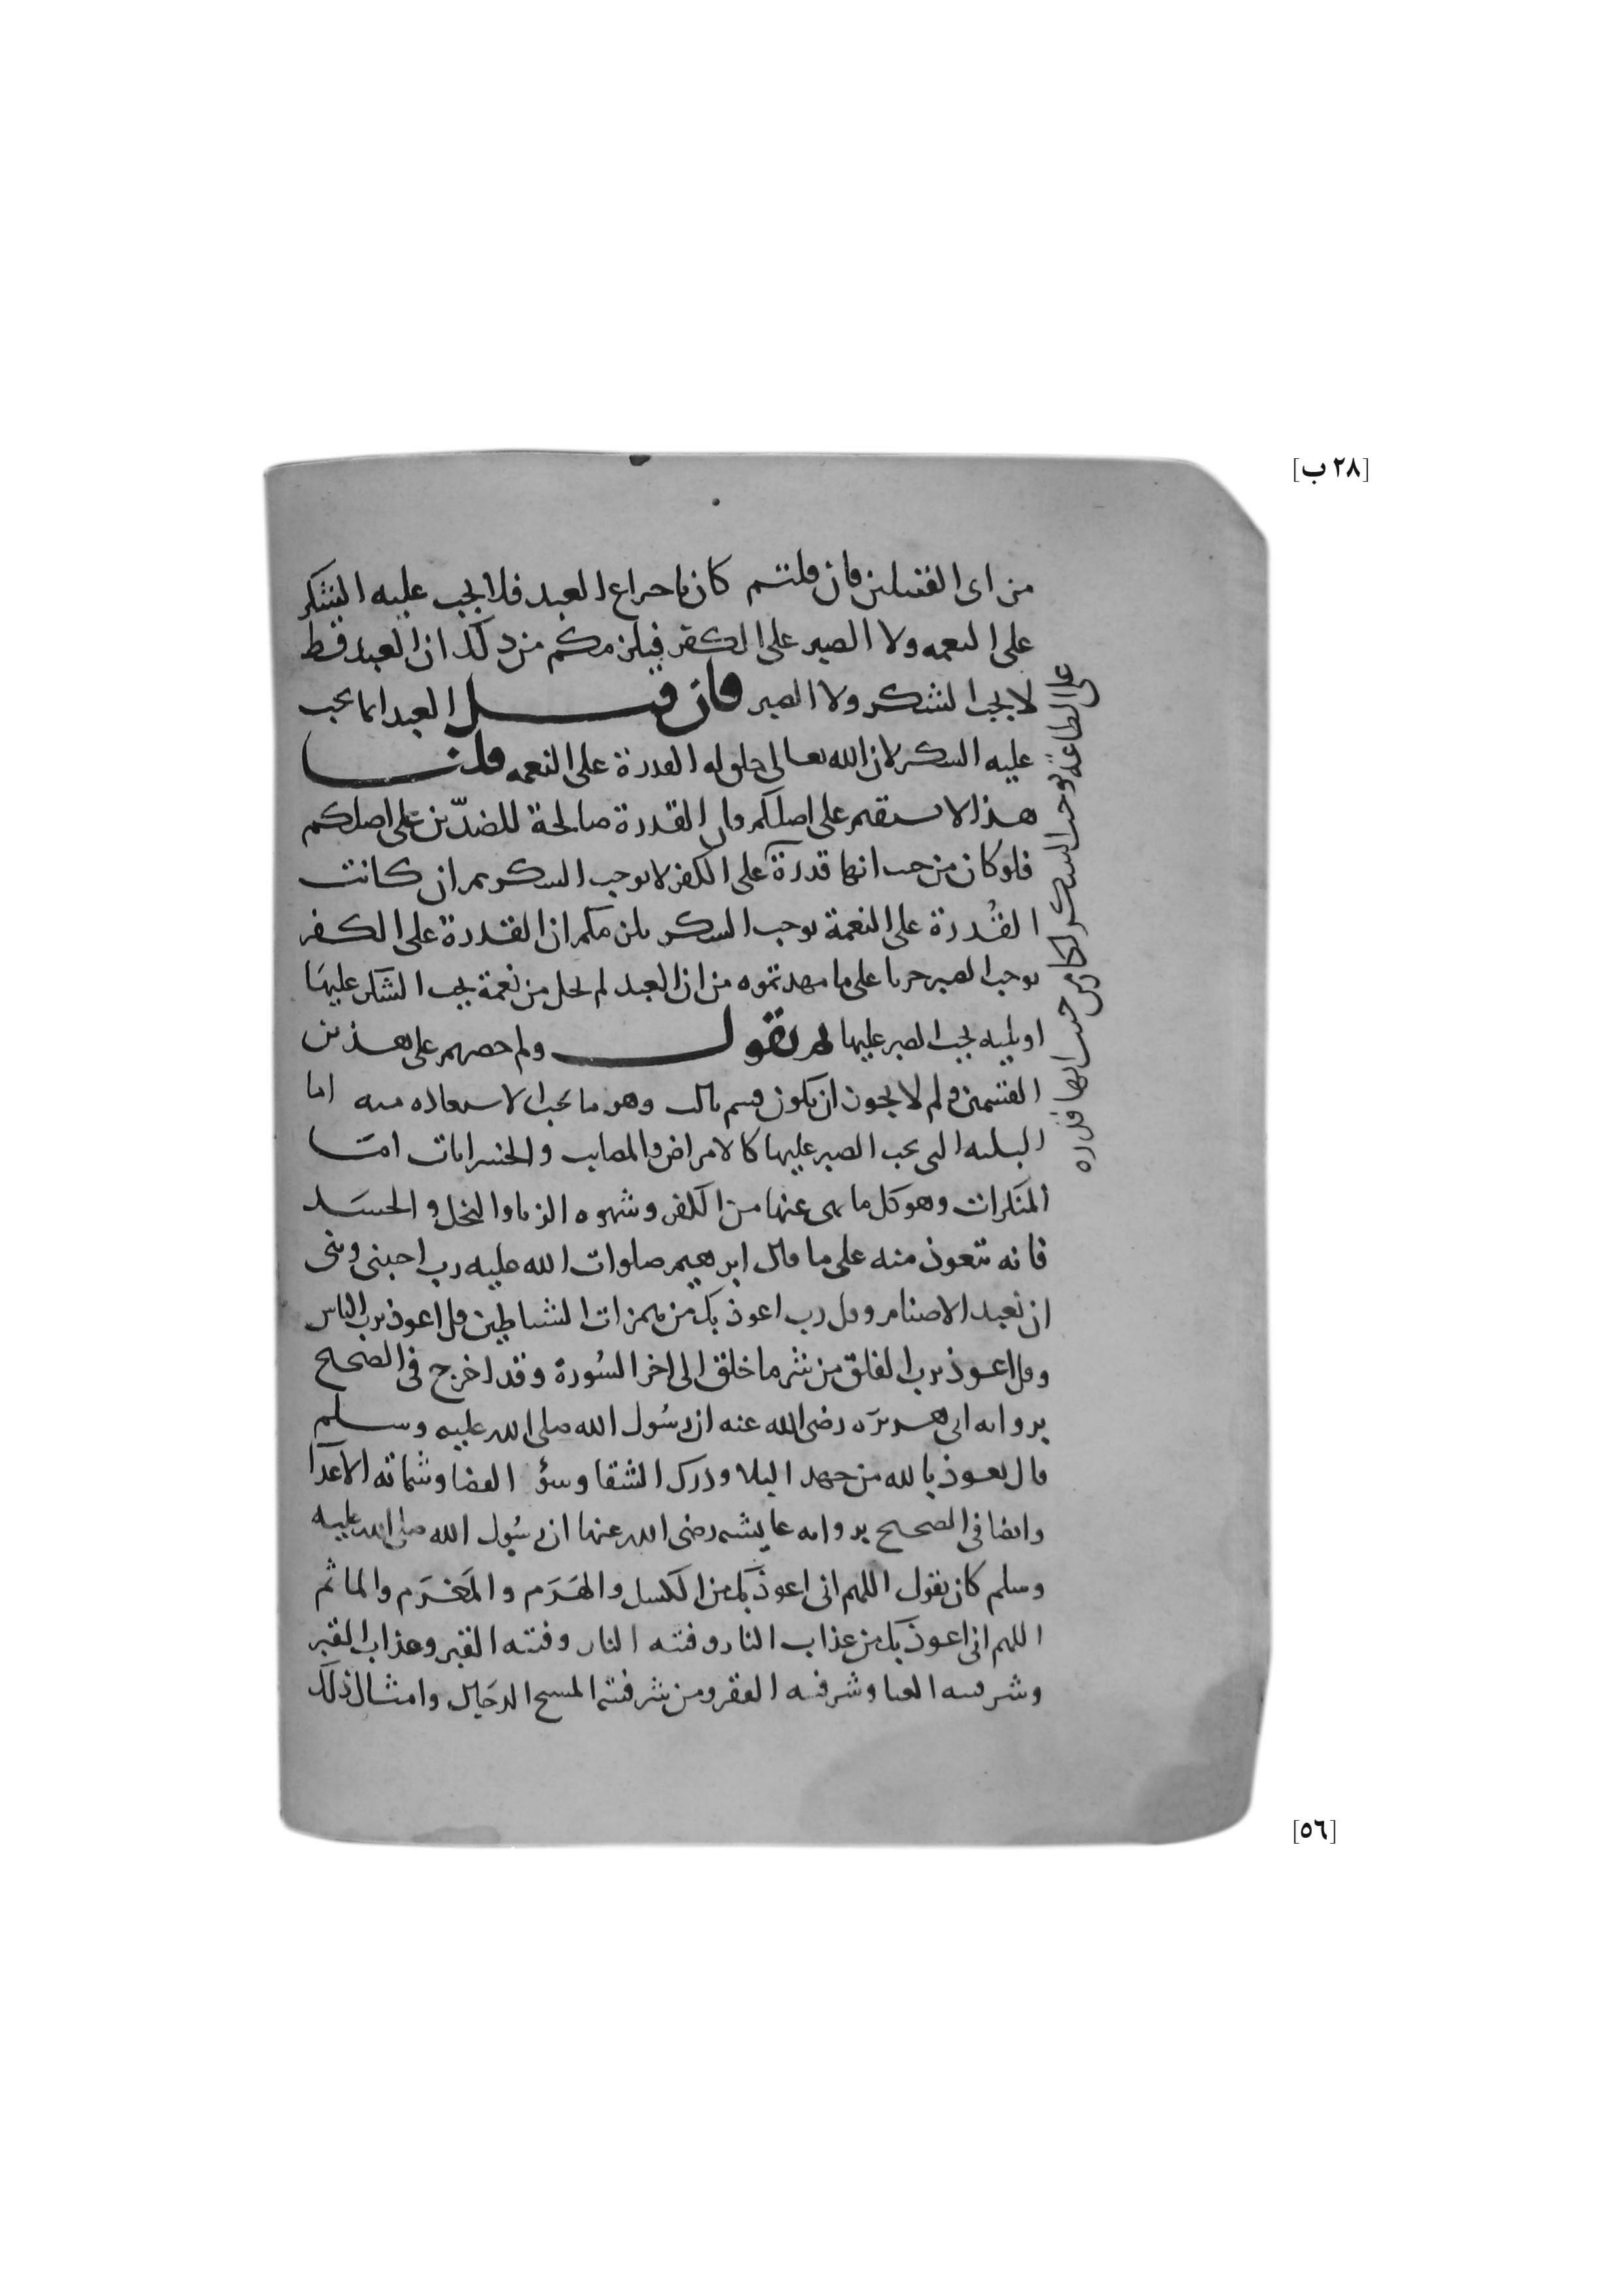 [٢٨ ب]
من اى القبيلين فان قلتم كان باختراع العبد فلا يجب عليه الشكر
على النعمه ولا الصبر على الكفر فيلزمكم من ذلك ان العبد قط
لا يجب الشكر ولا الصبر فان قيل العبد انما يجب
عليه الشكر لان الله تعالى خلق له القدرة على النعمه قلنا
هذا لا يستقيم على اصلكم فان القدرة صالحة للضدّين على اصلكم
فلو كان من حيث انها قدرة على الكفر لا يوجب الشكر ثم ان كانت
القُدرة على النعمة يوجب الشكر يلزمكم ان القدرة على الكفر
يوجب الصبر جريا على ما مهدتموه من ان العبد لم يخل من نعمة يجب الشكر عليها
او بليه يجب الصبر عليها ثم نقول ولم حصرهم على هذين
القسمين ولم لا يجوز ان يكون قسم ثالث وهو ما يجب الاستعاذه منه اما
البليه التى يجب الصبر عليها كالامراض والمصايب والخسرانات امّا
المنكرات وهو كل ما نهى عنها من الكفر وشهوه الزنا والبخل والحسَد
فانه نتعوذ منه على ما قال ابرهيم صلوات الله عليه رب اجنبنى وبنى
ان نعبد الاصنام وقل رب اعوذ بك من همزات الشياطين قل اعوذ برب الناس
وقل اعوذ برب الفلق من شر ما خلق الى اخر السُورة وقد اخرج فى الصحيح
بروايه ابى هريرَه رضى الله عنه ان رسُول الله صلى الله عليه وسلم
قال تعوذ بالله من جهد البلا ودرك الشقا وسؤ القضا وشماته الاعدا
وايضا فى الصحيح بروايه عايشه رضى الله عنها ان رسُول الله صلى الله عليه
وسلم كان يقول اللهم انى اعوذ بك من الكسل والهَرَم والمَغرَم والماثم
اللهم انى اعوذ بك من عذاب النار وفتنه النار وفتنه القبر وعذاب القبر
وشر فتنه الغنا وشر فتنه الفقر ومن شر فتنه المسيح الدجَال وامثال ذلك
على الطاعة يوجب الشكر لكان من حيث انها قدره
[٥٦]